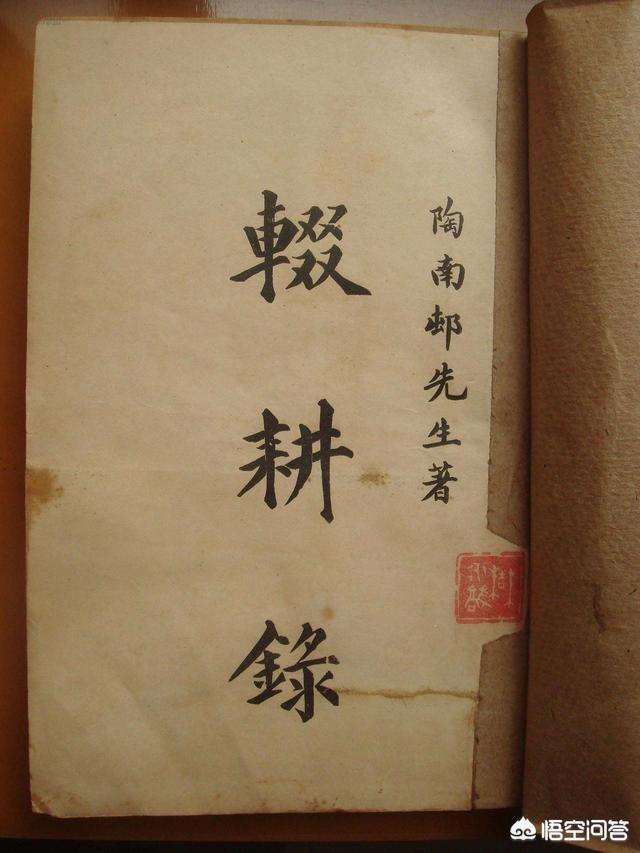 陶南邨先生著
輟耕錄
悟空问答